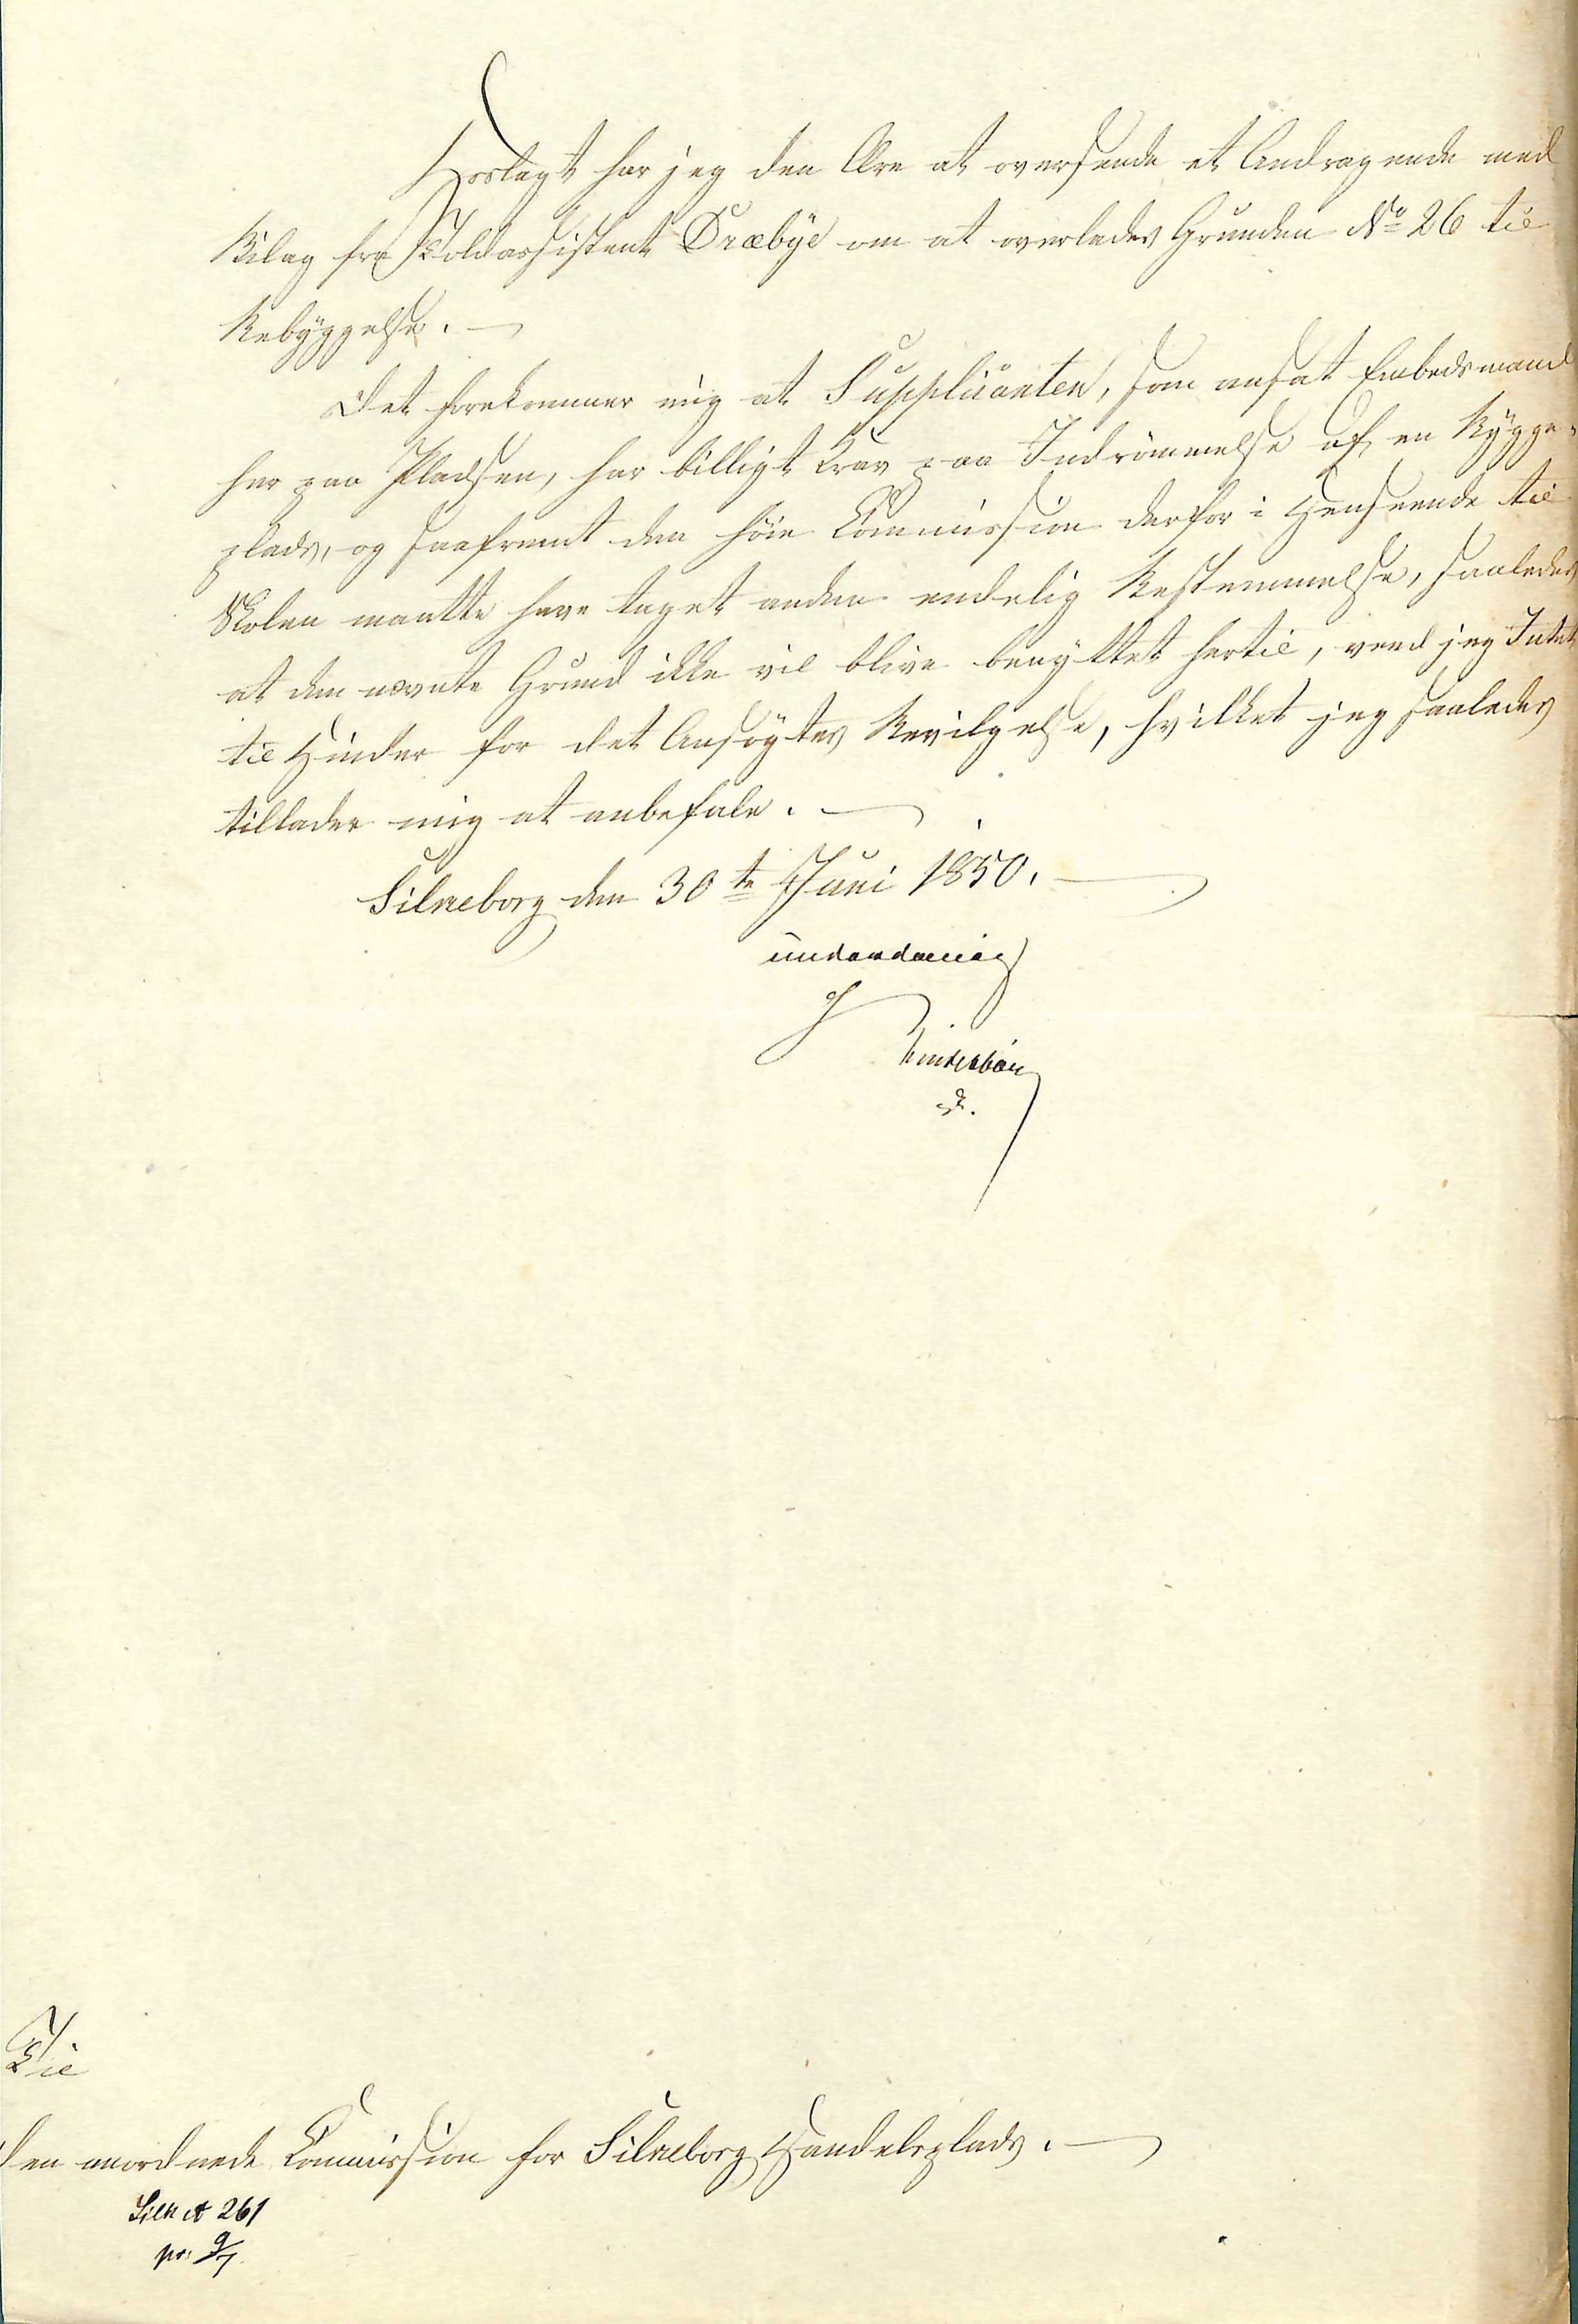 Hoslagt har jeg den Ære at oversende et Andragende med
Bilag fra Toldassistent Dræbye om at overlades Grunden No 26 til
Bebyggelse. —
Det forekommer mig at Supplicanten, som ansat Embedsmand
her paa Pladsen, har billigt Krav paa Indrømmelse af en Bygge-
plads, og saafremt den høie Commission derfor i Henseende til
Skolen maatte have taget anden endelig Bestemmelse, saaledes
at den nævnte Grund ikke vil blive benyttet hertil, veed jeg Intet
til Hinder for det Ansøgtes Bevilgelse, hvilket jeg saaledes
tillader mig at anbefale. —
Silkeborg den 30te Juni 1850. —
underdanig
Til
den anordnede Commission for Silkeborg Handelsplads. —
Silk A 261
pr. 9/7.